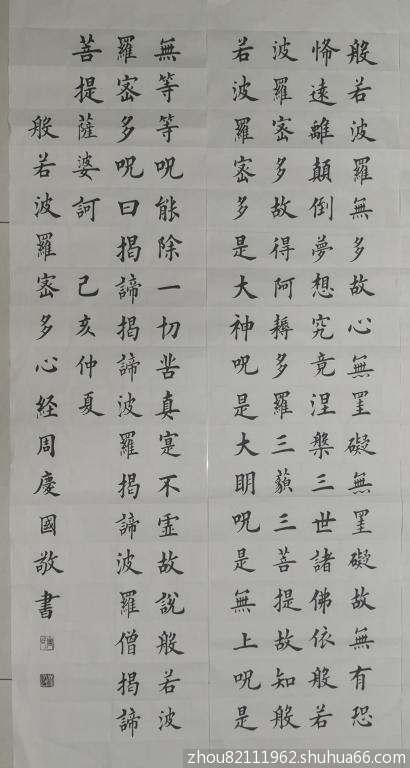 般若波羅無多故心無罣礙無罣礙故無有恐
怖遠離顛倒夢想究竟涅槃三世諸佛依般若
波羅密多故得阿耨多羅三藐三菩提故知般
若波羅密多是大神呪是大明呪是無上呪是
無等等呪能除一切苦真寔不虛故說般若波
羅密多呪曰揭諦揭諦波羅揭諦波羅僧揭諦
菩提薩婆訶 己亥仲夏
般若波羅密多心経周慶國敬書
zhou82111962.shuhua66.com